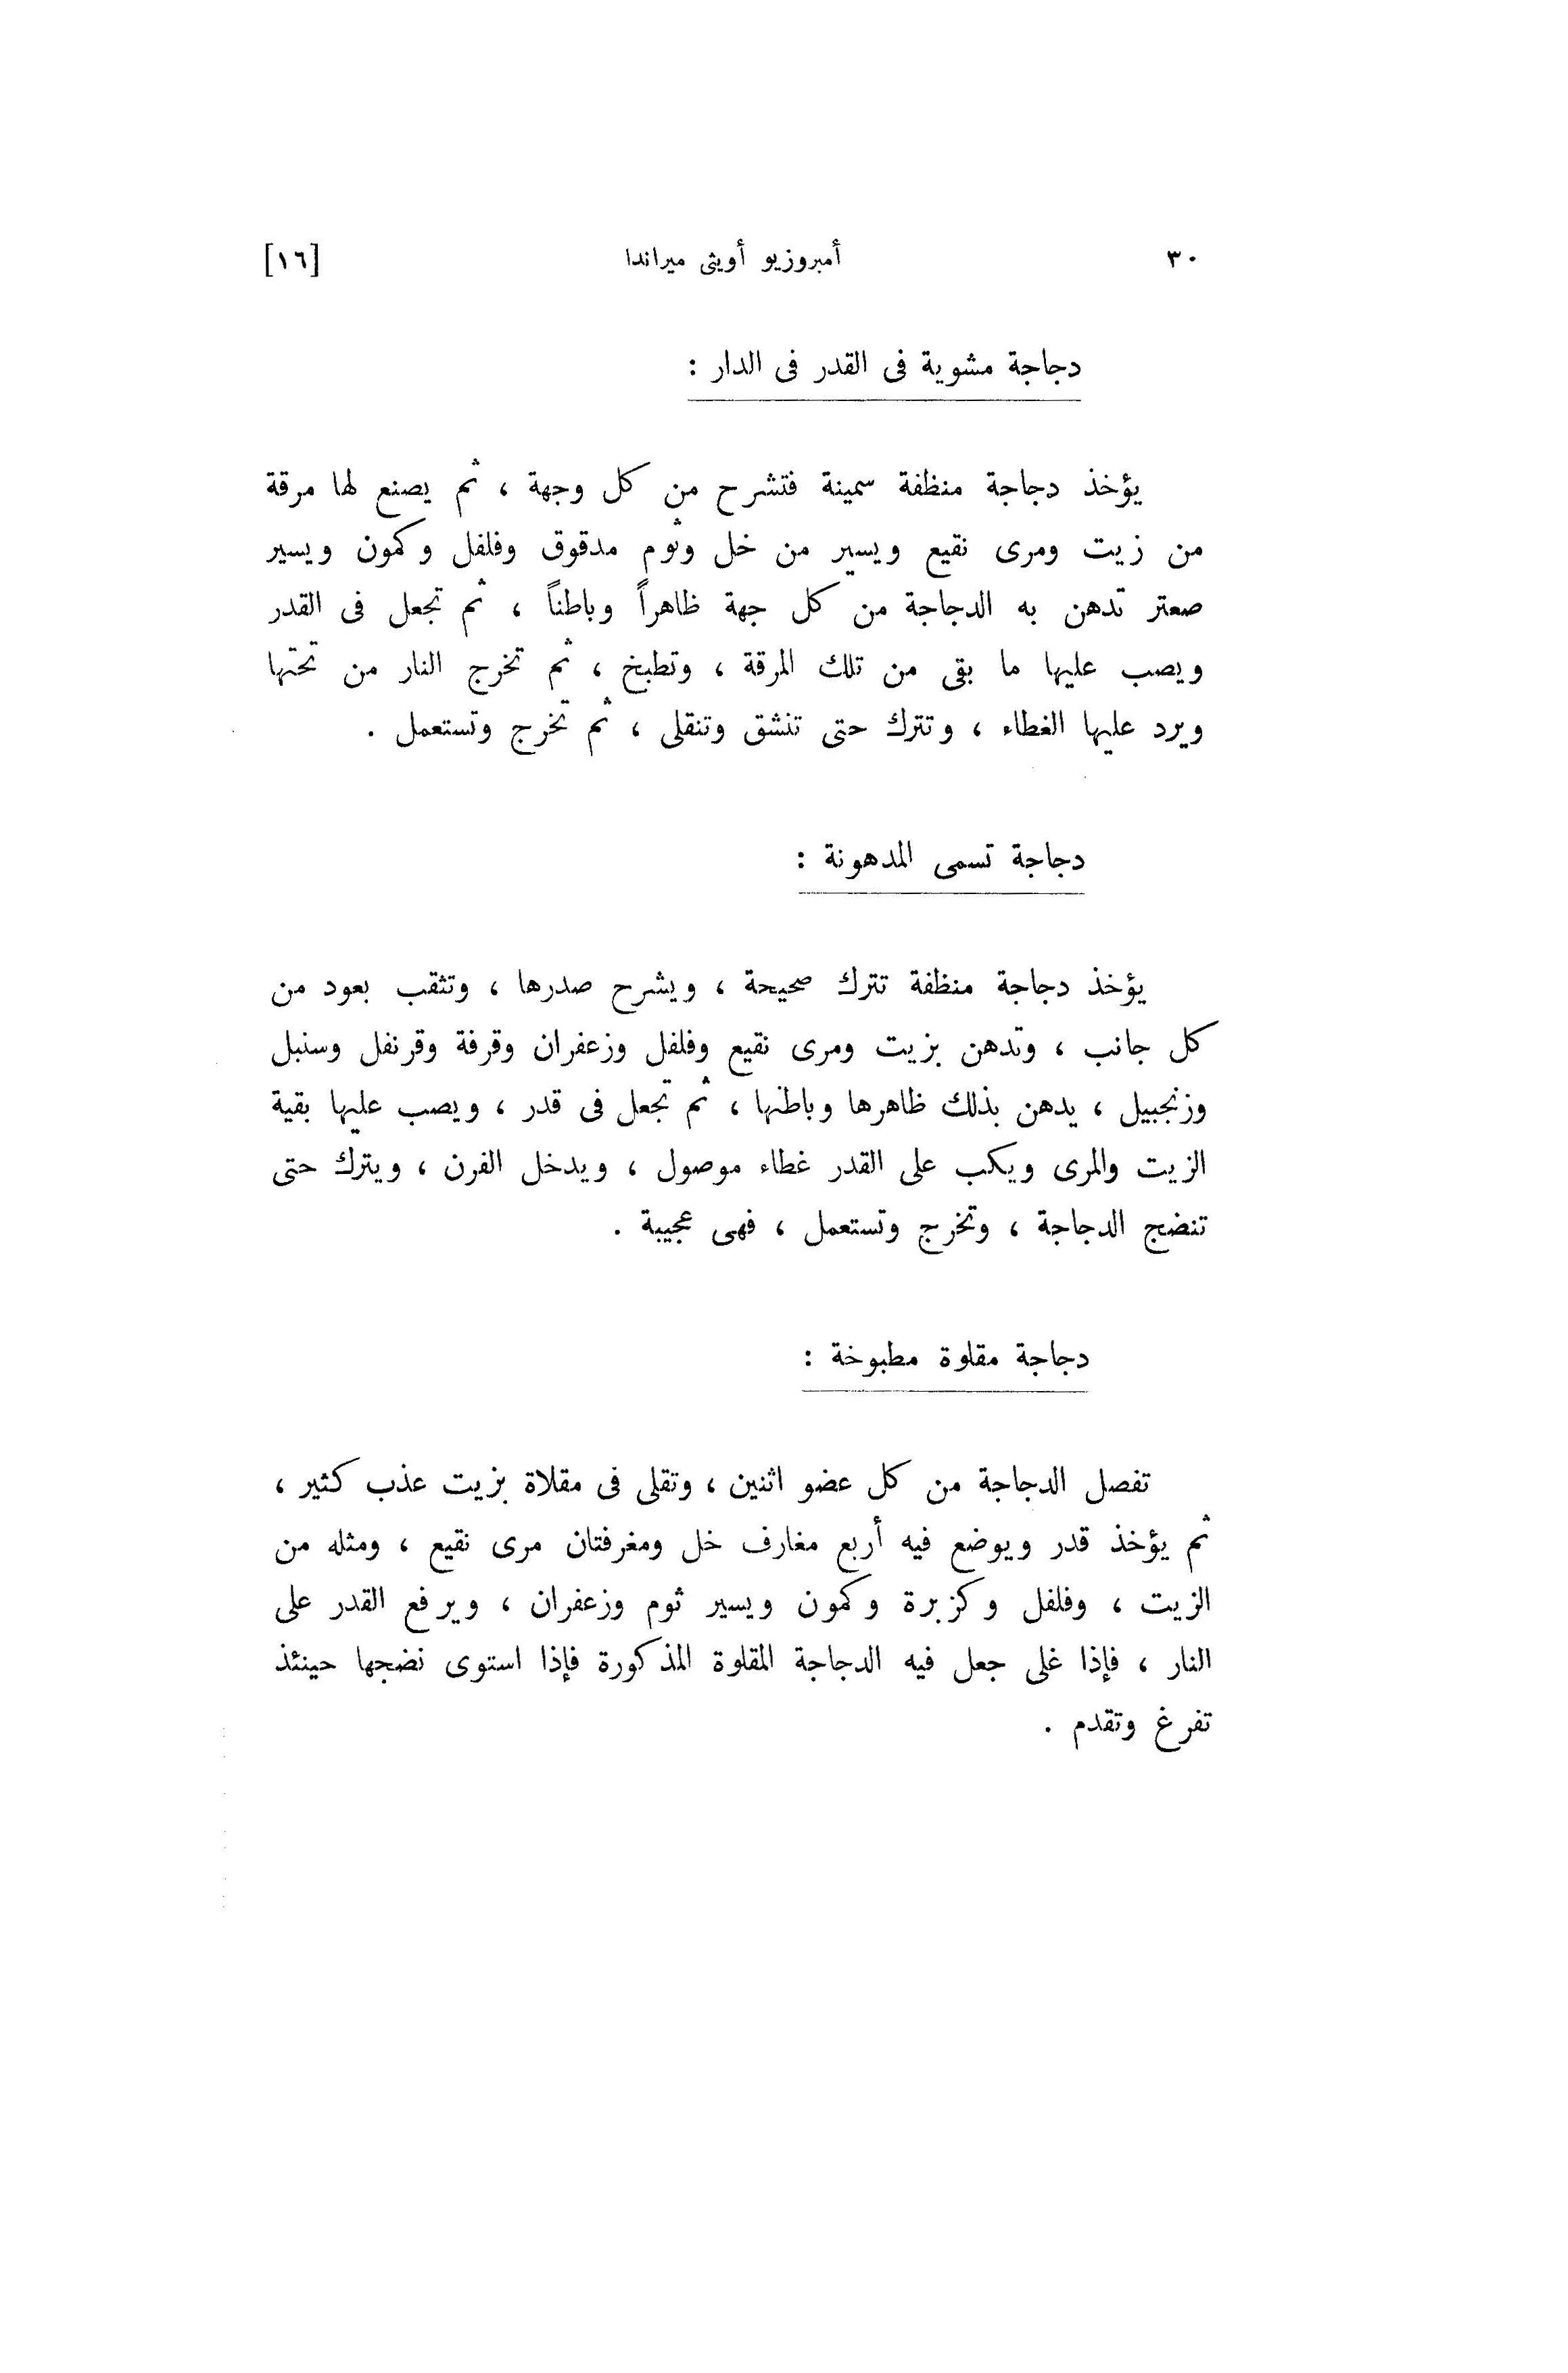 ٣٠ أمبروزيو أويثى ميراندا [١٦]
دجاجة مشوية فى القدر فى الدار :
يؤخذ دجاجة منظفة سمينة فتشرح من كل وجهة ، ثم يصنع لها مرقة
من زيت ومرى نقيع ويسير من خل وثوم مدقوق وفلفل وكمون ويسير
صعتر تدهن به الدجاجة من كل جهة ظاهراً وباطناً ، ثم تجعل فى القدر
ويصب عليها ما بقى من تلك المرقة ، وتطبخ ، ثم تخرج النار من تحتها
ويرد عليها الغطاء ، وتترك حتى تنشق وتنقلى ، ثم تخرج وتستعمل .
دجاجة تسمى المدهونة :
يؤخذ دجاجة منظفة تترك صحيحة ، ويشرح صدرها ، وتثقب بعود من
كل جانب ، وتدهن بزيت ومرى نقيع وفلفل وزعفران وقرفة وقرنفل وسنبل
وزنجبيل ، يدهن بذلك ظاهرها وباطنها ، ثم تجعل فى قدر ، ويصب عليها بقية
الزيت والمرى ويكب على القدر غطاء موصول ، ويدخل الفرن ، ويترك حتى
تنضج الدجاجة ، وتخرج وتستعمل ، فهى عجيبة .
دجاجة مقلوة مطبوخة :
تفصل الدجاجة من كل عضو اثنين ، وتقلى فى مقلاة بزيت عذب كثير ،
ثم يؤخذ قدر ويوضع فيه أربع مغارف خل ومغرفتان مرى نقيع ، ومثله من
الزيت ، وفلفل وكزبرة وكمون ويسير ثوم وزعفران ، ويرفع القدر على
النار ، فإذا غلى جعل فيه الدجاجة المقلوة المذكورة فإذا استوى نضجها حينئذ
تفرغ وتقدم .